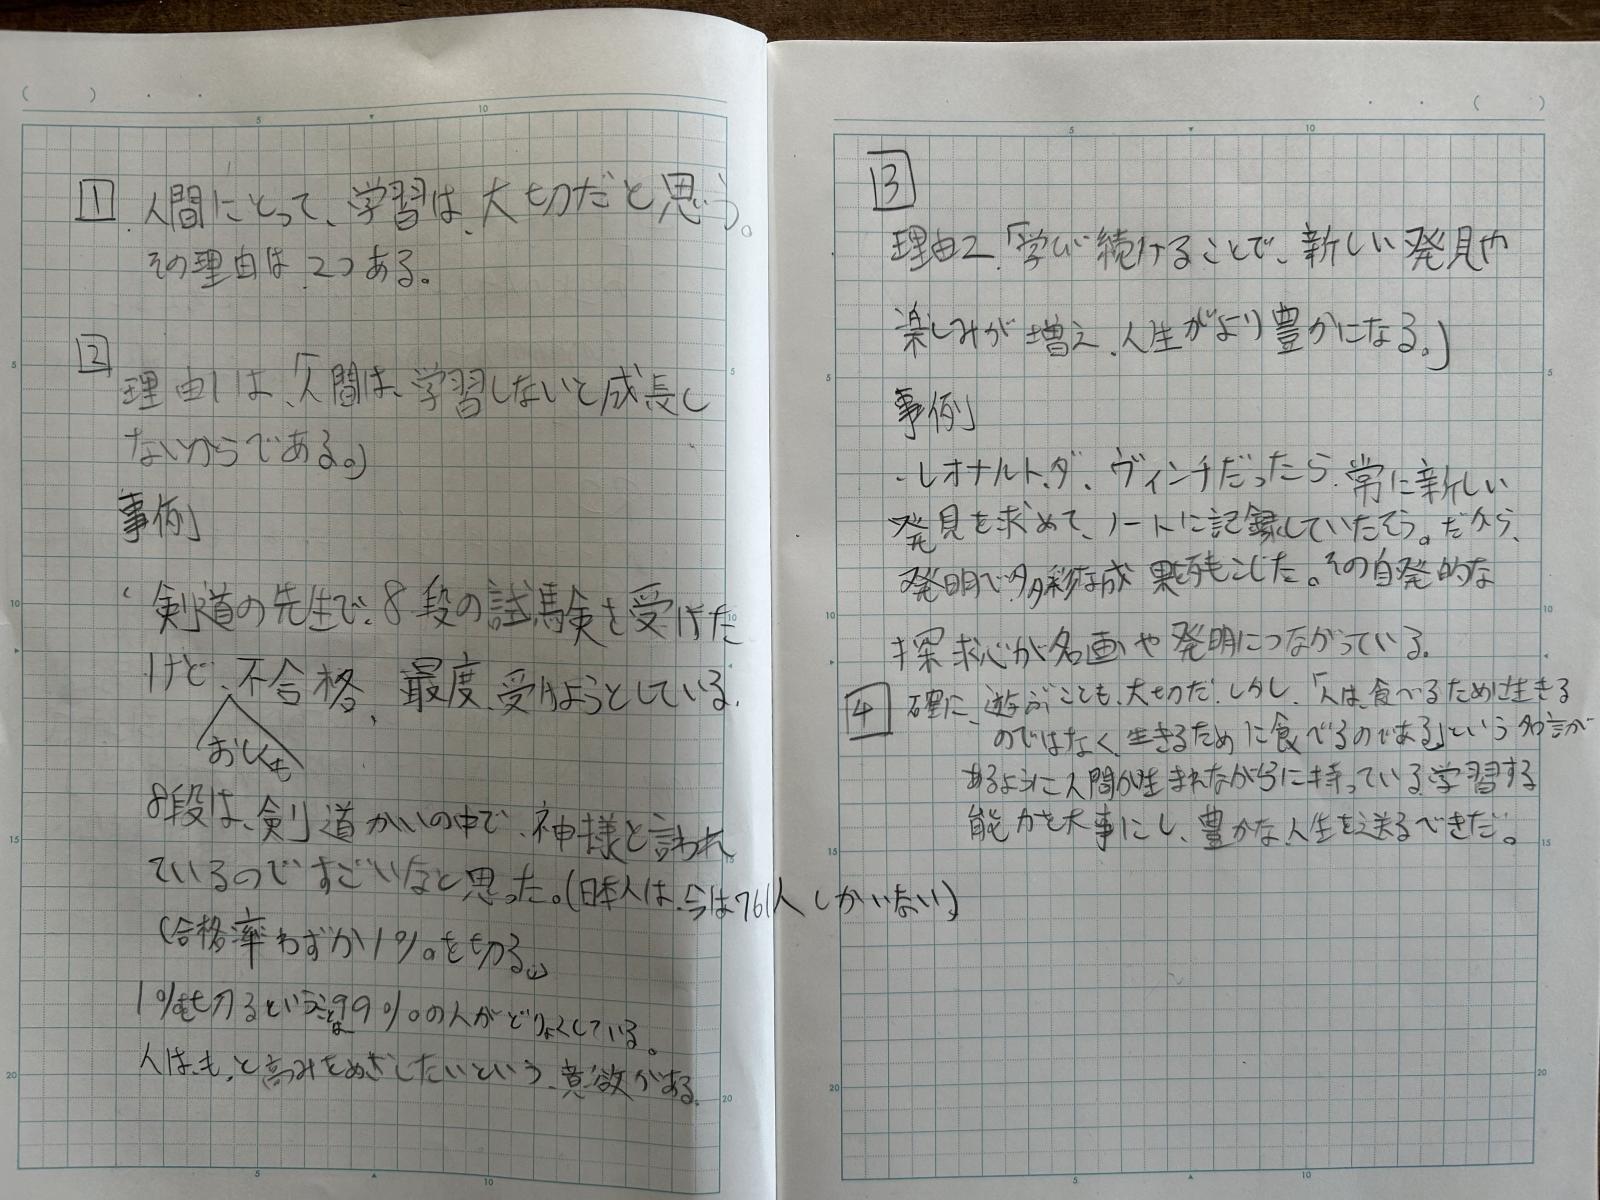 1 人間にとって、学習は、大切だと思う。
その理由は、2つある。
2
理由1は、「人間は、学習しないと成長し
ないからである。」
事例
・剣道の先生で、8段の試験を受けた
けど、不合格、最度、受けようとしている。
おしくも
8段は、剣道かいの中で、神様と言われ
ているのですごいなと思った。(日本人は、今は761人しかいない)
(合格率わずか1%を切る。)
1%を切るということは99%の人がどりょくしている。
人は、もっと高みをめざしたいという、意欲がある。
( )
5 10
5
10
15
20
( )
5 10
3
理由2、「学び続けることで、新しい発見や
楽しみが増え、人生がより豊かになる。」
事例
・レオナルト、ダ、ヴィンチだったら、常に新しい
発見を求めて、ノートに記録していたそう。だから、
発明で多彩な成果をもこした。その自発的な
探求心が名画や発明につながっている。
4 確に、遊ぶことも、大切だ。しかし、「人は、食べるために生きる
のではなく、生きるために食べるのである」という名言が
あるように人間が生まれながらに持っている学習する
能力を大事にし、豊かな人生を送るべきだ。
5
10
15
20